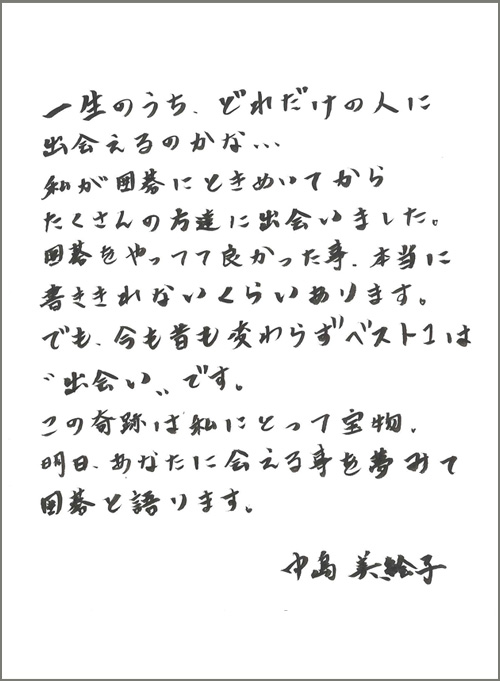 一生のうち、どれだけの人に
出会えるのかな…
私が囲碁にときめいてから
たくさんの方達に出会いました。
囲碁をやってて良かった事、本当に
書ききれないくらいあります。
でも、今も昔も変わらずベスト1は
〝出会い〟です。
この奇跡は私にとって宝物。
明日、あなたに会える事を夢みて
囲碁と語ります。
中島 美絵子